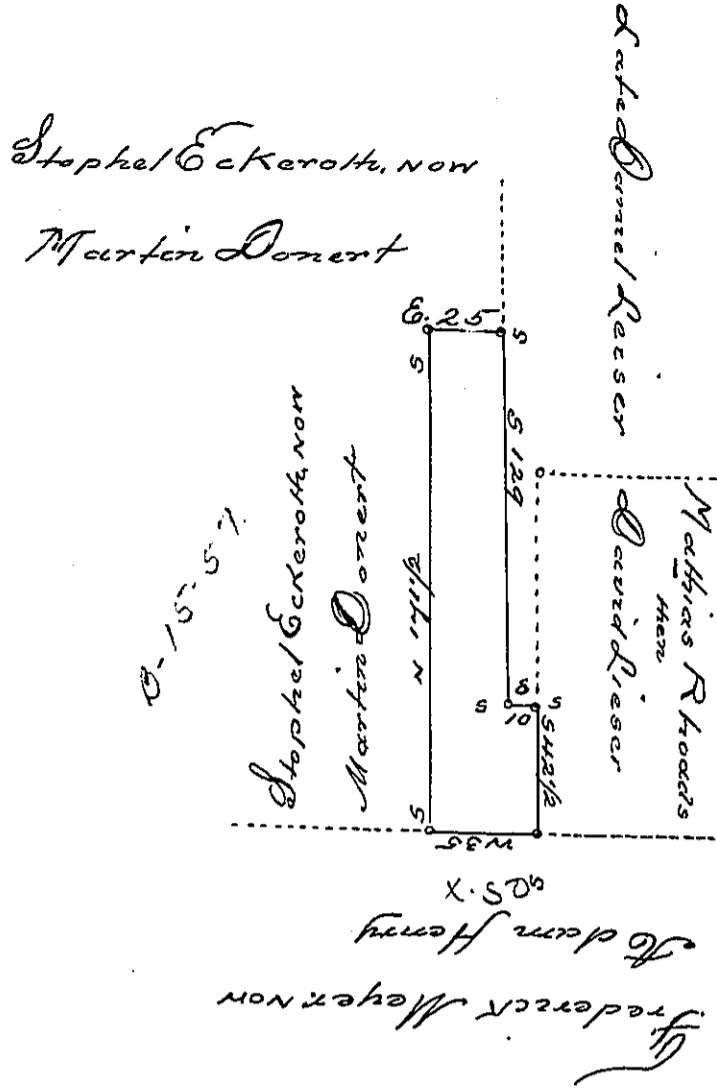 Stophel Eckeroth, now
Martin Donert
Late Daniel Leiser
E. 25
S
S
S 129
Stophel Eckeroth, now
Martin Donert
N 171 1/2
Mathias Rhoads
then
David Lieser
S
E
10
S
S 42 1/2
S
W 35
Adam Henry
Frederick Meyer, now